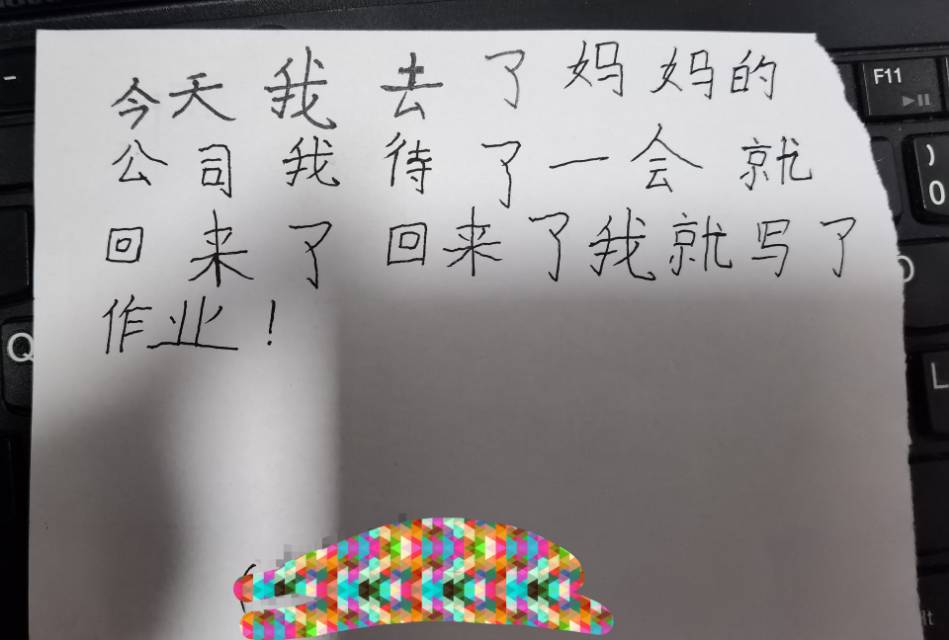 今天我去了妈妈的
公司我待了一会就
回来了回来了我就写了
作业！
F11
)
0
Q
L